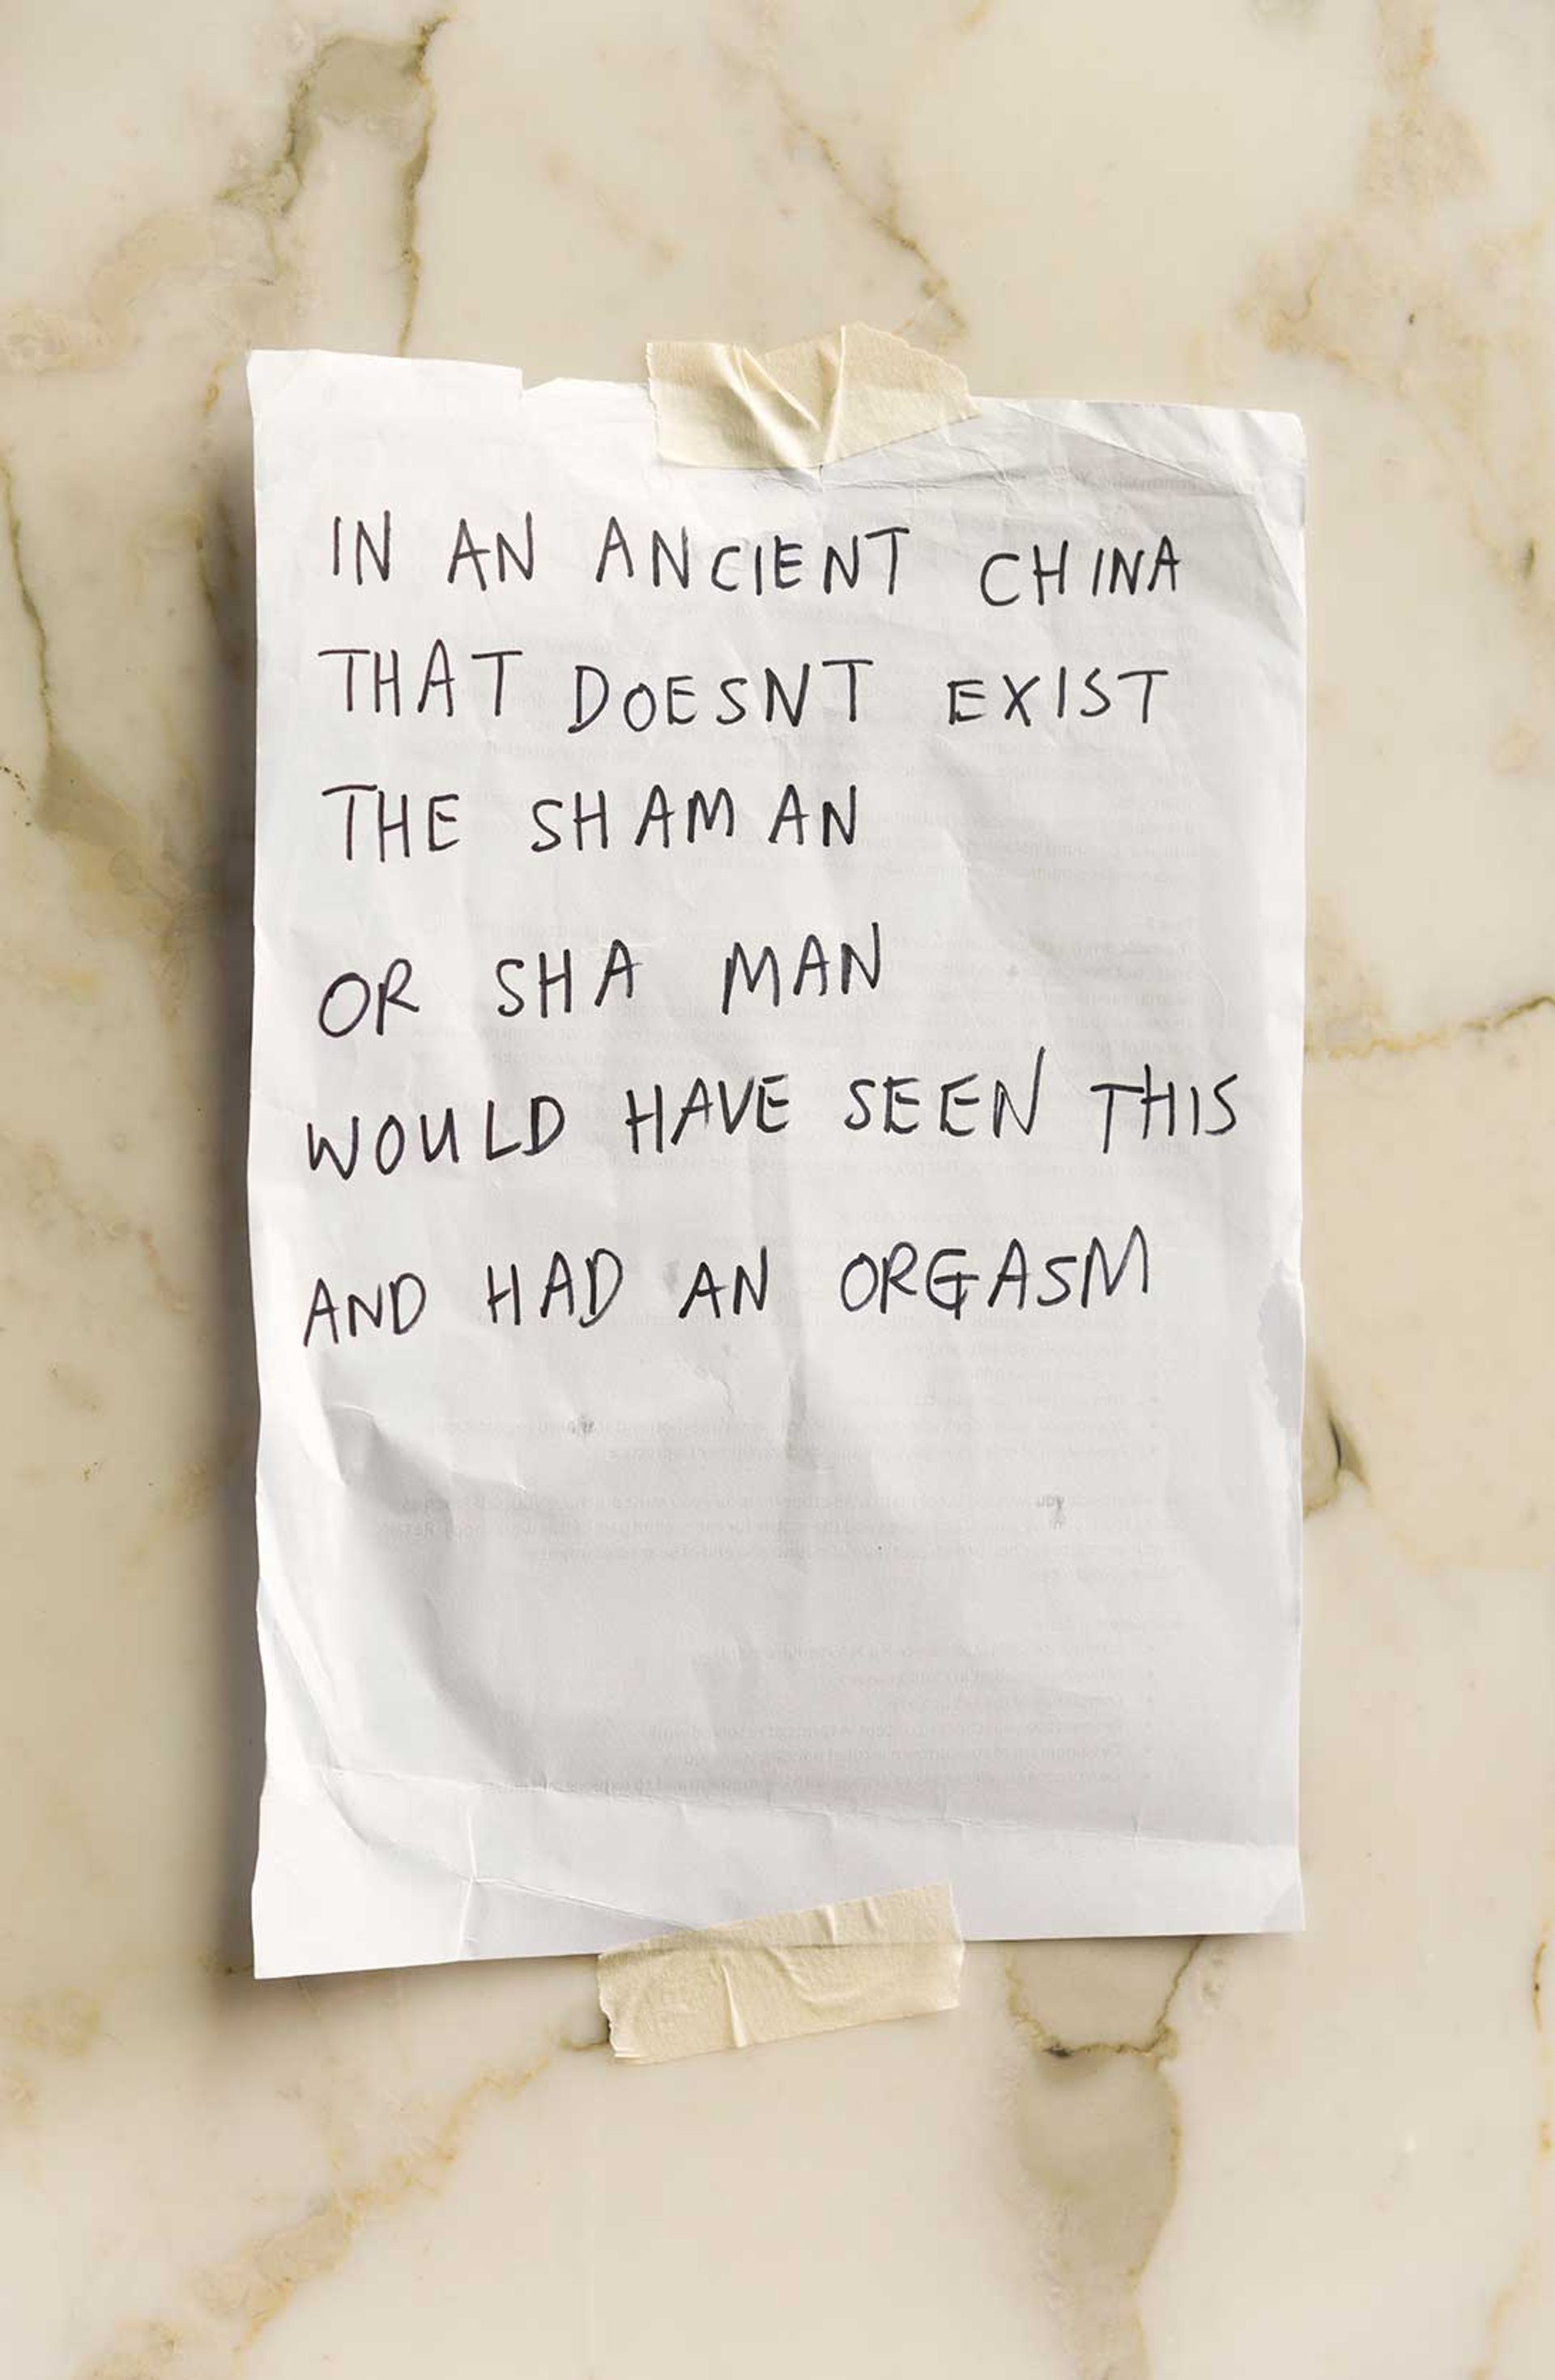 IN AN ANCIENT CHINA
THAT DOESNT EXIST
THE SHAMAN
OR SHA MAN
WOULD HAVE SEEN THIS
AND HAD AN ORGASM